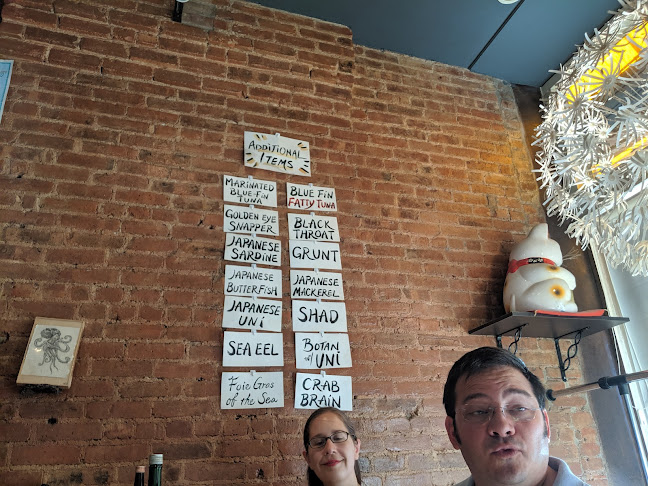 ADDITIONAL
ITEMS
MARINATED
BLUE-FIN
TUNA
BLUE FIN
FATTY TUNA
GOLDEN EYE
SNAPPER
BLACK
THROAT
JAPANESE
SARDINE
GRUNT
JAPANESE
BUTTERFISH
JAPANESE
MACKEREL
JAPANESE
UNI
SHAD
SEA EEL
BOTAN
w/ UNI
Foie Gras
of the Sea
CRAB
BRAIN